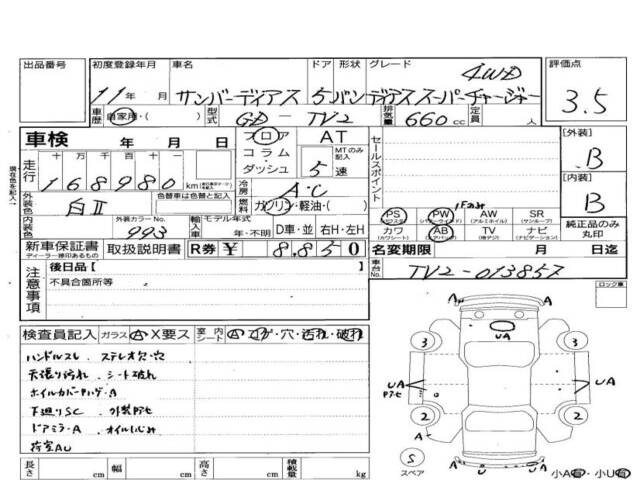 出品番号 初度登録年月 車名 ドア 形状 グレード 評価点
11年 月 サンバーディアス 5 バン ディアススーパーチャージャー 4WD 3.5
車歴 自家用・( ) 型式 GD-TV2 排気量 660cc 定員 人
車検 年 月 日 フロア AT
コラム・ MTのみ記入
ダッシュ 5速
走行 十万千百十一
168980 km
冷房 A・C
燃料 ガソリン・軽油・( )
外装色 白II 色替車は色替と記入
外装カラーNo. 993
内装色 輸入車 モデル年式 年・不明 D車・並 右H・左H
セールスポイント
PS PW AW SR
カワ AB TV ナビ
[外装] B
[内装] B
純正品のみ丸印
新車保証書 取扱説明書 R券 ¥ 8,850
ディーラー捺印あるもの
名変期限 月 日迄
車台No. TV2-013857
注意事項
後日品[ ]
不具合箇所等
ロック車
検査員記入 ガラス A X要ス 室内シート A コゲ・穴・汚れ・破れ
ハンドルスレ.ステレオ欠.穴
天張り汚れ.シート破れ
ホイルカバー A
下廻りSC.
ドアミラーA.オイルにじみ
荷室AU
A A
UA
3 3
UA UA
2 2
A A
S スペア A U U A
小A有・小U有
長さ cm 幅 cm 高さ cm 積載量 kg